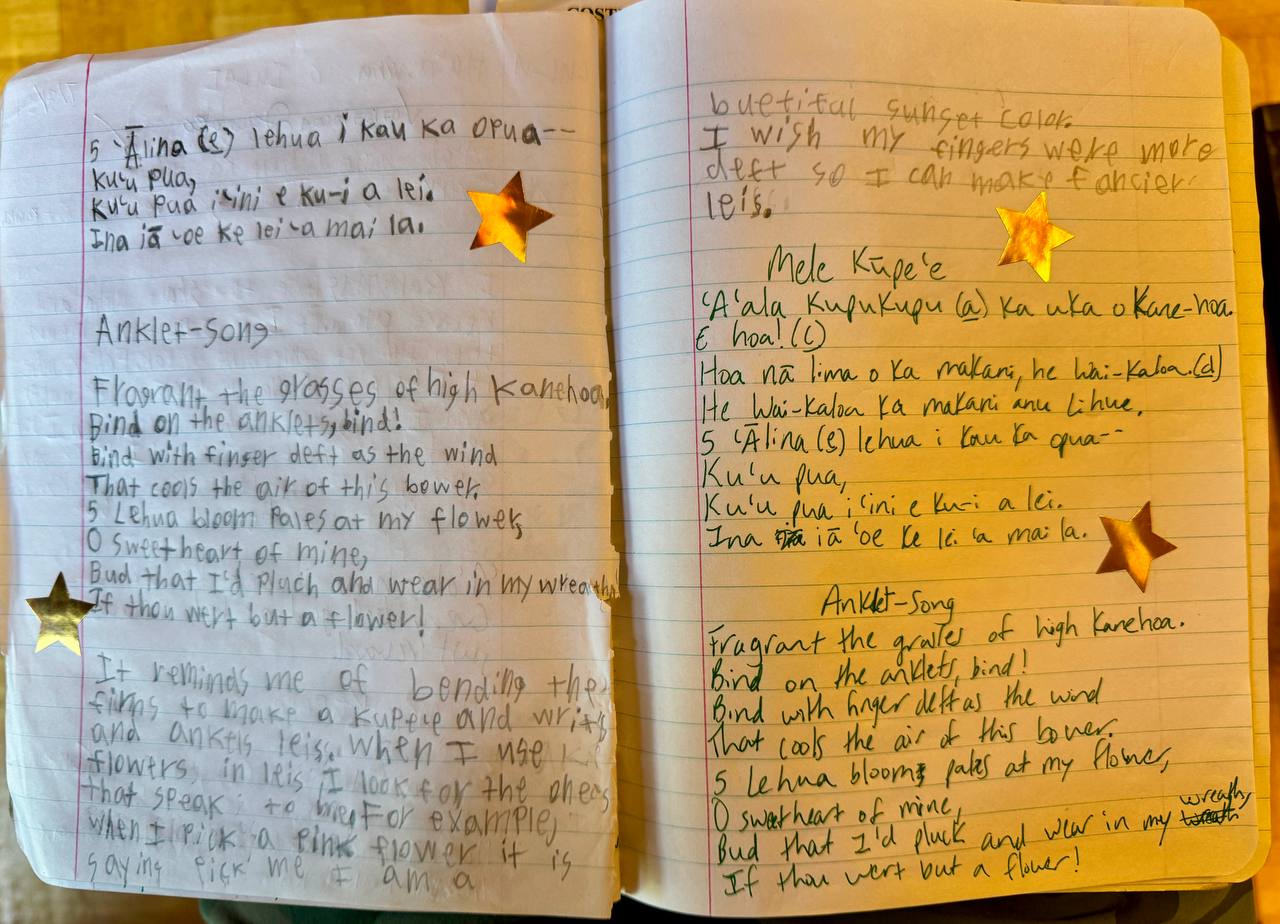 COST
5 ʻĀlina (e) lehua i kau ka opua--
Kuʻu pua,
Kuʻu pua iʻini e ku-i a lei.
Ina iā ʻoe ke lei ʻa mai la.
Anklet-Song
Fragrant the grasses of high Kanehoa.
Bind on the anklets, bind!
Bind with finger deft as the wind
That cools the air of this bower.
5 Lehua bloom Pales at my flower,
O sweetheart of mine,
Bud that I'd pluch and wear in my wreath,
If thou wert but a flower!
It reminds me of bending the
firns to make a and
and leis. when I use
flowers in leis, I look for the ones
that speak to me. For example,
when I pick a pink flower it is
saying pick me I am a
buetifal sunset color.
I wish my fingers were more
deft so I can make fancier
leis.
Mele Kūpeʻe
ʻAʻala Kupukupu (a) ka uka o Kane-hoa.
E hoa! (c)
Hoa nā lima o ka makani, he Wai-Kaloa.(d)
He Wai-Kaloa ka makani anu Lihue.
5 ʻĀlina (e) lehua i kau ka opua--
Kuʻu pua,
Kuʻu pua iʻini e ku-i a lei.
Ina iā ʻoe ke lei ʻa mai la.
Anklet-Song
Fragrant the grasses of high Kanehoa.
Bind on the anklets, bind!
Bind with finger deft as the wind
That cools the air of this bower.
5 Lehua bloom pales at my flower,
O sweetheart of mine,
Bud that I'd pluck and wear in my wreath,
If thou wert but a flower!